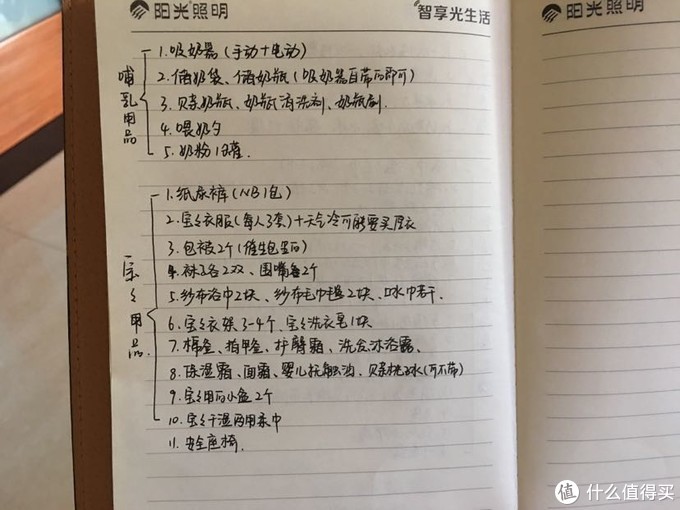 阳光照明
智享光生活
阳光照明
哺乳用品
1.吸奶器(手动+电动)
2.储奶袋、储奶瓶(吸奶器自带的即可)
3.贝亲奶瓶、奶瓶清洗剂、奶瓶刷.
4.喂奶勺
5.奶粉1罐.
宝宝用品
1.纸尿裤(NB1包)
2.宝宝衣服(每人3套)+天气冷可能要买厚衣
3.包被2个(催生包里的)
4.袜子各2双、围嘴各2个
5.纱布浴巾2块、纱布毛巾毯2块、口水巾若干.
6.宝宝衣架3-4个、宝宝洗衣皂1块
7.棉签、指甲钳、护臀霜、洗发沐浴露、
8.面霜、婴儿抚触油、贝亲桃子水(可不带)
9.宝宝用的小盆2个
10.宝宝干湿两用柔巾
11.安全座椅.
值 什么值得买